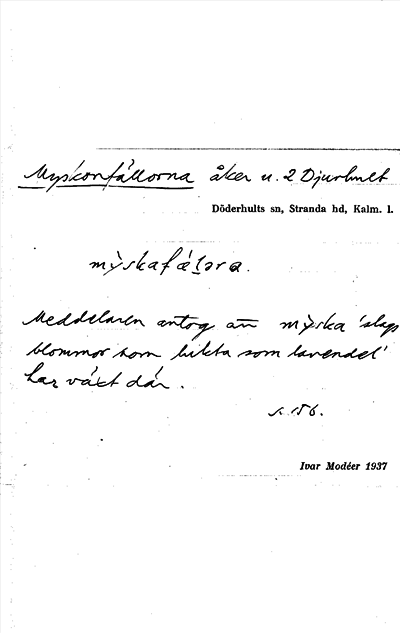 Myskonfållorna åker u. 2 Djurhult
Döderhults sn, Stranda hd, Kalm. l.
mỳskafæ̀ləra.
Meddelaren antog att mỳska 'slags
blommor som lukta som lavendel'
har växt där.
s. 156.
Ivar Modéer 1937